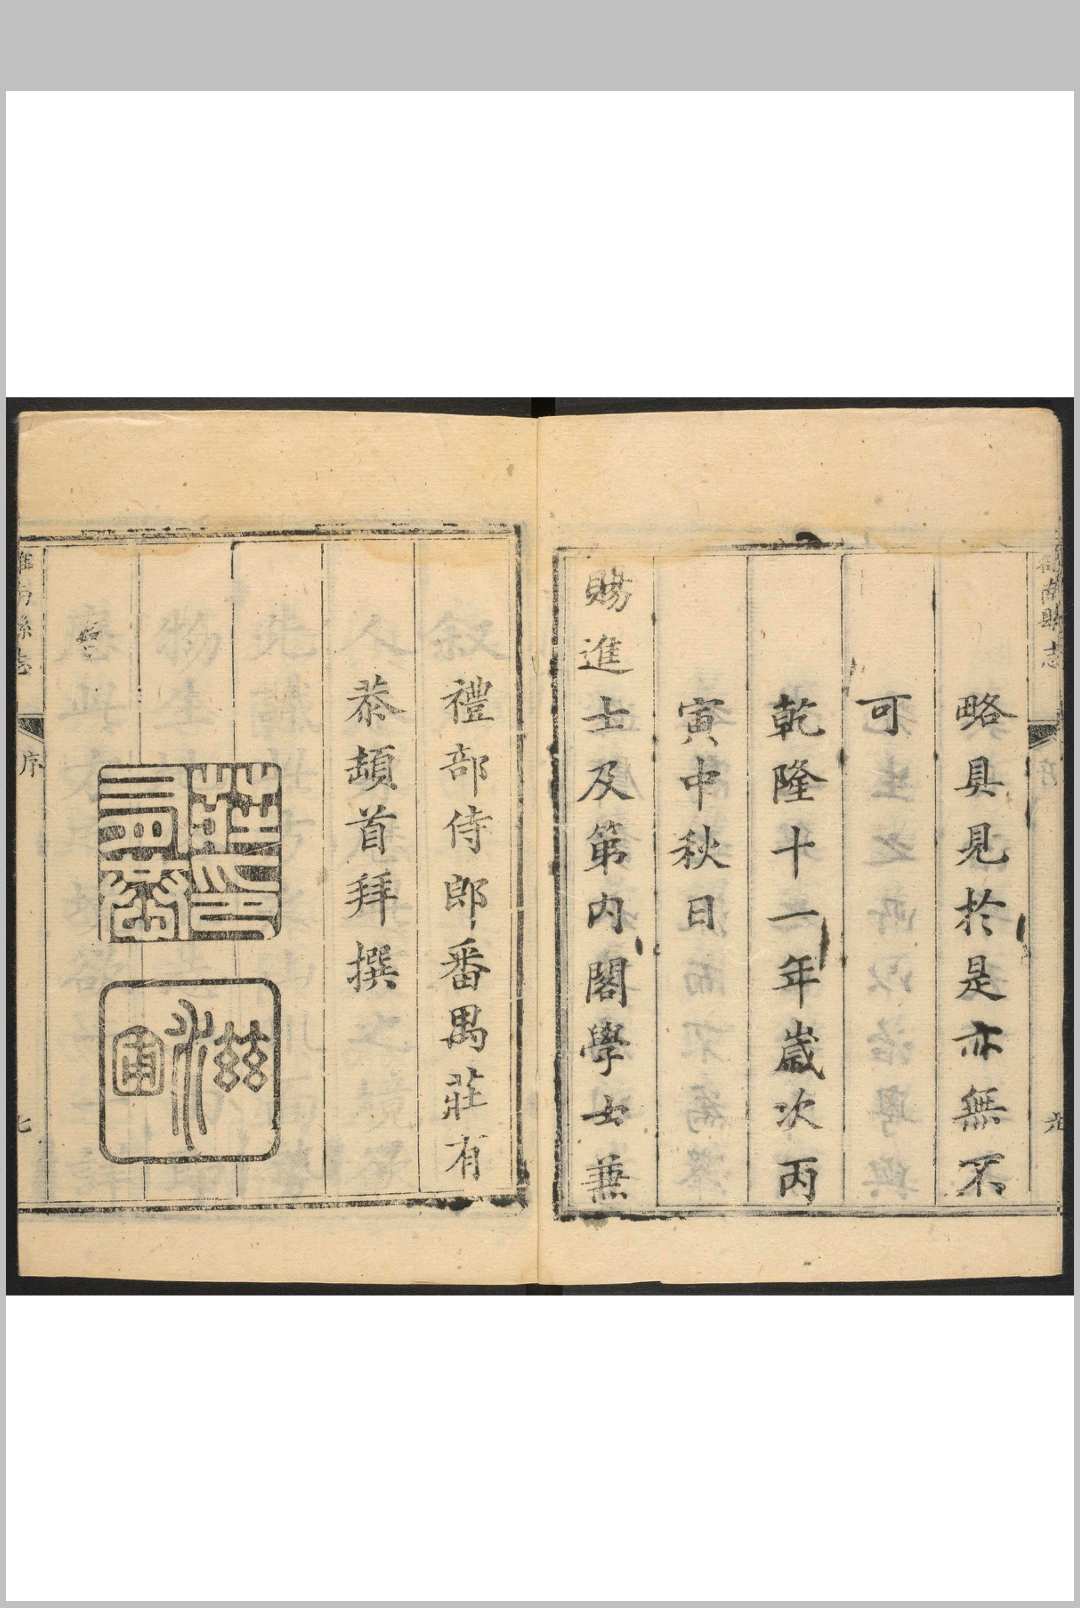 略具見於是亦無不
可
乾隆十一年歲次丙
寅中秋日
賜進士及第內閣學士兼
禮部侍郎番禺莊有
恭頓首拜撰
南縣志
序